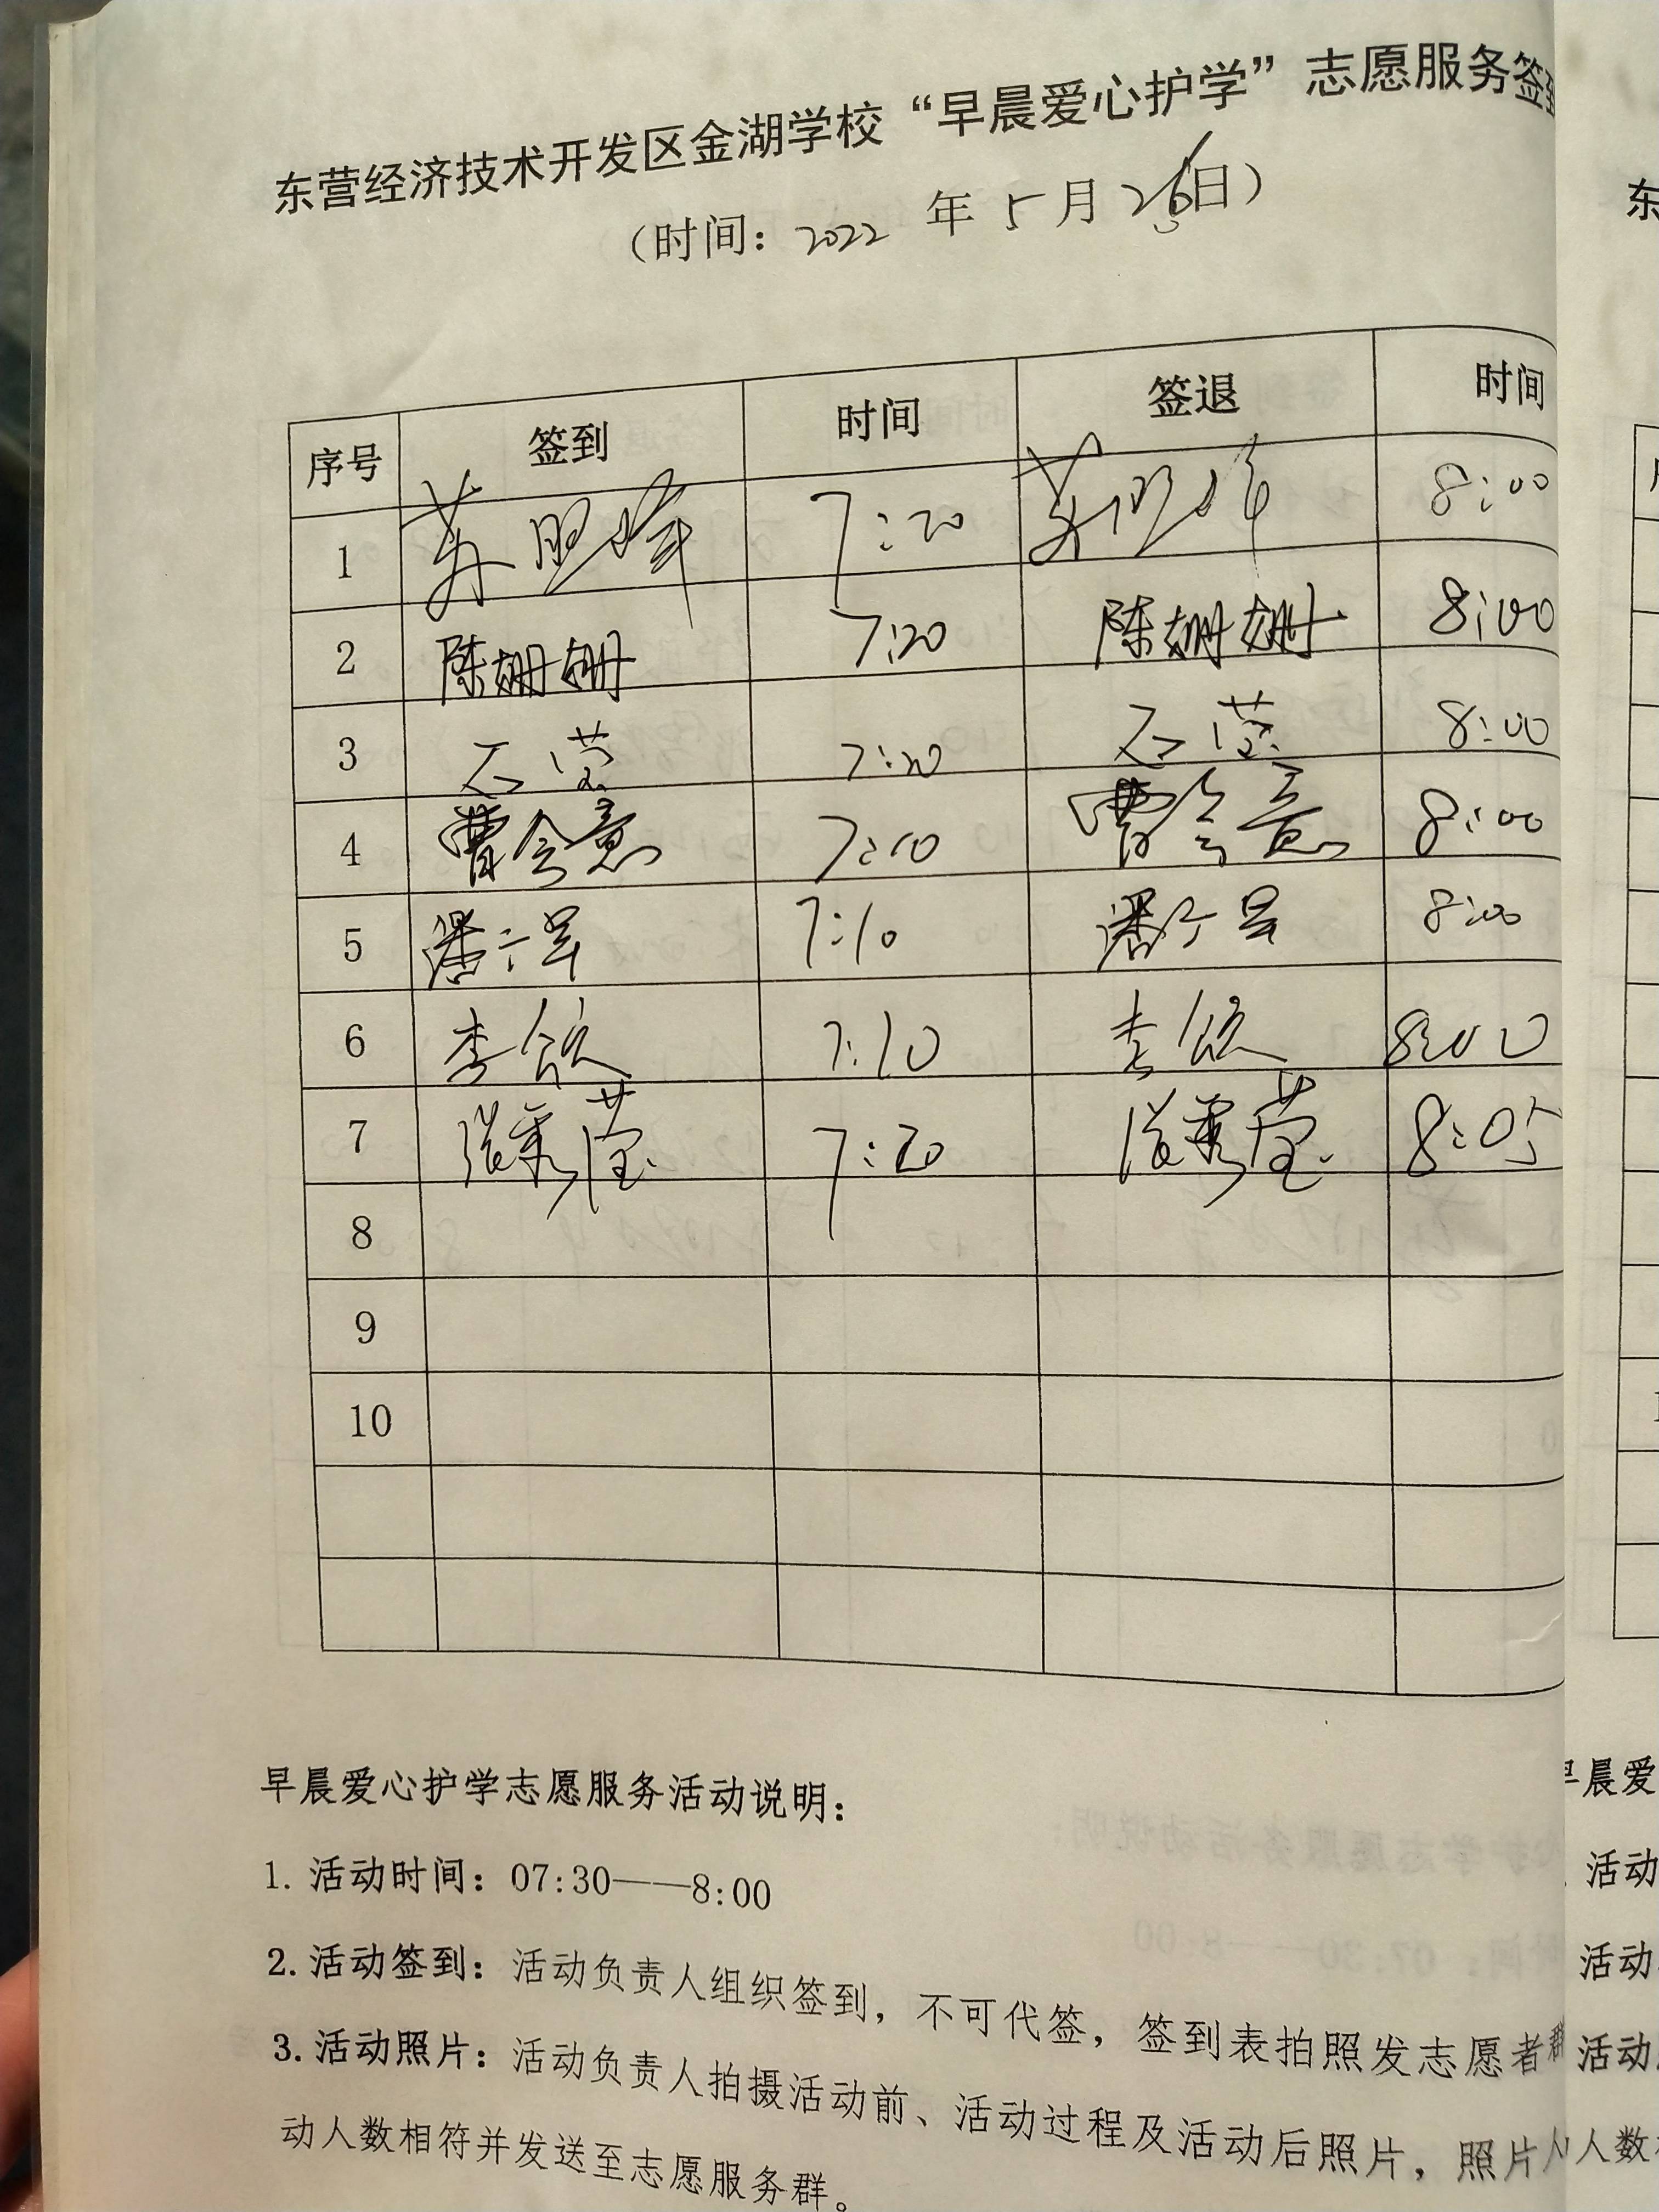 东营经济技术开发区金湖学校“早晨爱心护学”志愿服务签到
（时间：2022 年 5 月 26 日）
序号 签到 时间 签退 时间
1 7:20 8:00
2 陈姗姗 7:20 陈姗姗 8:00
3 石莹 7:20 石莹 8:00
4 曹会意 7:10 曹会意 8:00
5 7:10 8:00
6 李 7:10 李 8:00
7 7:20 8:05
8
9
10
早晨爱心护学志愿服务活动说明：
1. 活动时间：07:30——8:00
2. 活动签到：活动负责人组织签到，不可代签，签到表拍照发志愿者群
3. 活动照片：活动负责人拍摄活动前、活动过程及活动后照片，照片人
动人数相符并发送至志愿服务群。
东
早晨爱
活动
活动
活动
人数